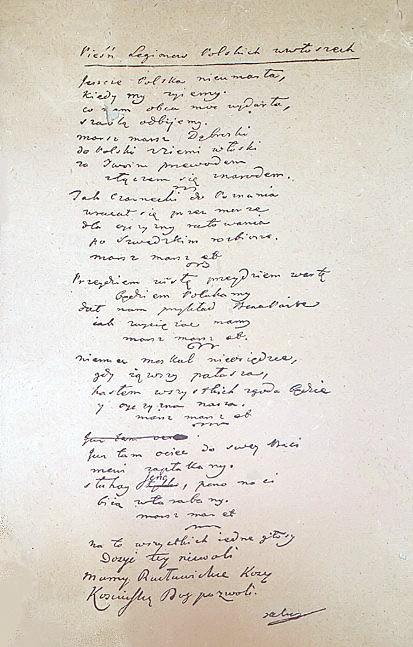 Pieśń Legionow Polskich we włoszech
Jeszcze Polska nieumarła,
kiedy my zyiemy.
co nam obca moc wydarła,
szablą odbijemy.
marsz marsz Dąbroski
do Polski z ziemi włoski
za Twoim przewodem
złączem się znarodem.
Jak Czarnecki do Poznania
wracał się przez morze
dla oyczyzny ratowania
po Szwedzkim rozbiorze.
marsz marsz et
Przeydziem wisłę przeydziem wartę
będziem Polakamy
dał nam przykład Bonaparte
iak zwyciężac mamy
marsz marsz et.
niemiec moskal nieosiędzie,
gdy iąwszy pałasza,
hasłem wszystkich zgoda będzie
y oyczyzna nasza.
marsz marsz et
Już tam
Już tam ociec do swey Basi
mowi zapłakany.
słuchay ieno, pono nasi
biią w tarabany.
marsz mar et
na to wszystkich iedne głosy
Dosyć tey niewoli
mamy Racławickie Kosy
Kosciuszkę Bog pozwoli.